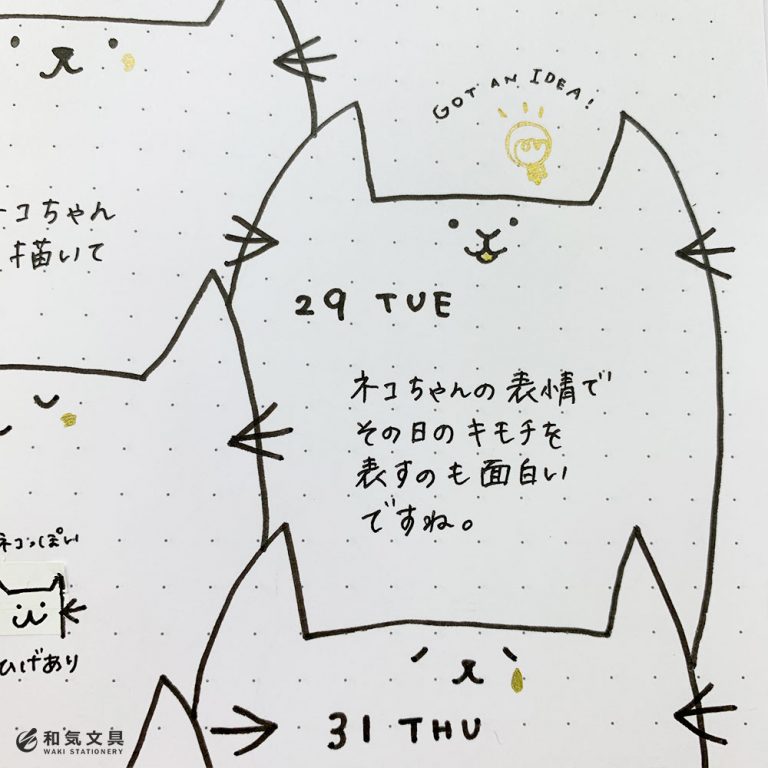 GOT AN IDEA!
コちゃん
描いて
29 TUE
ネコちゃんの表情で
その日のキモチを
表すのも面白い
ですね。
ネコっぽい
ひげあり
31 THU
和気文具
WAKI STATIONERY